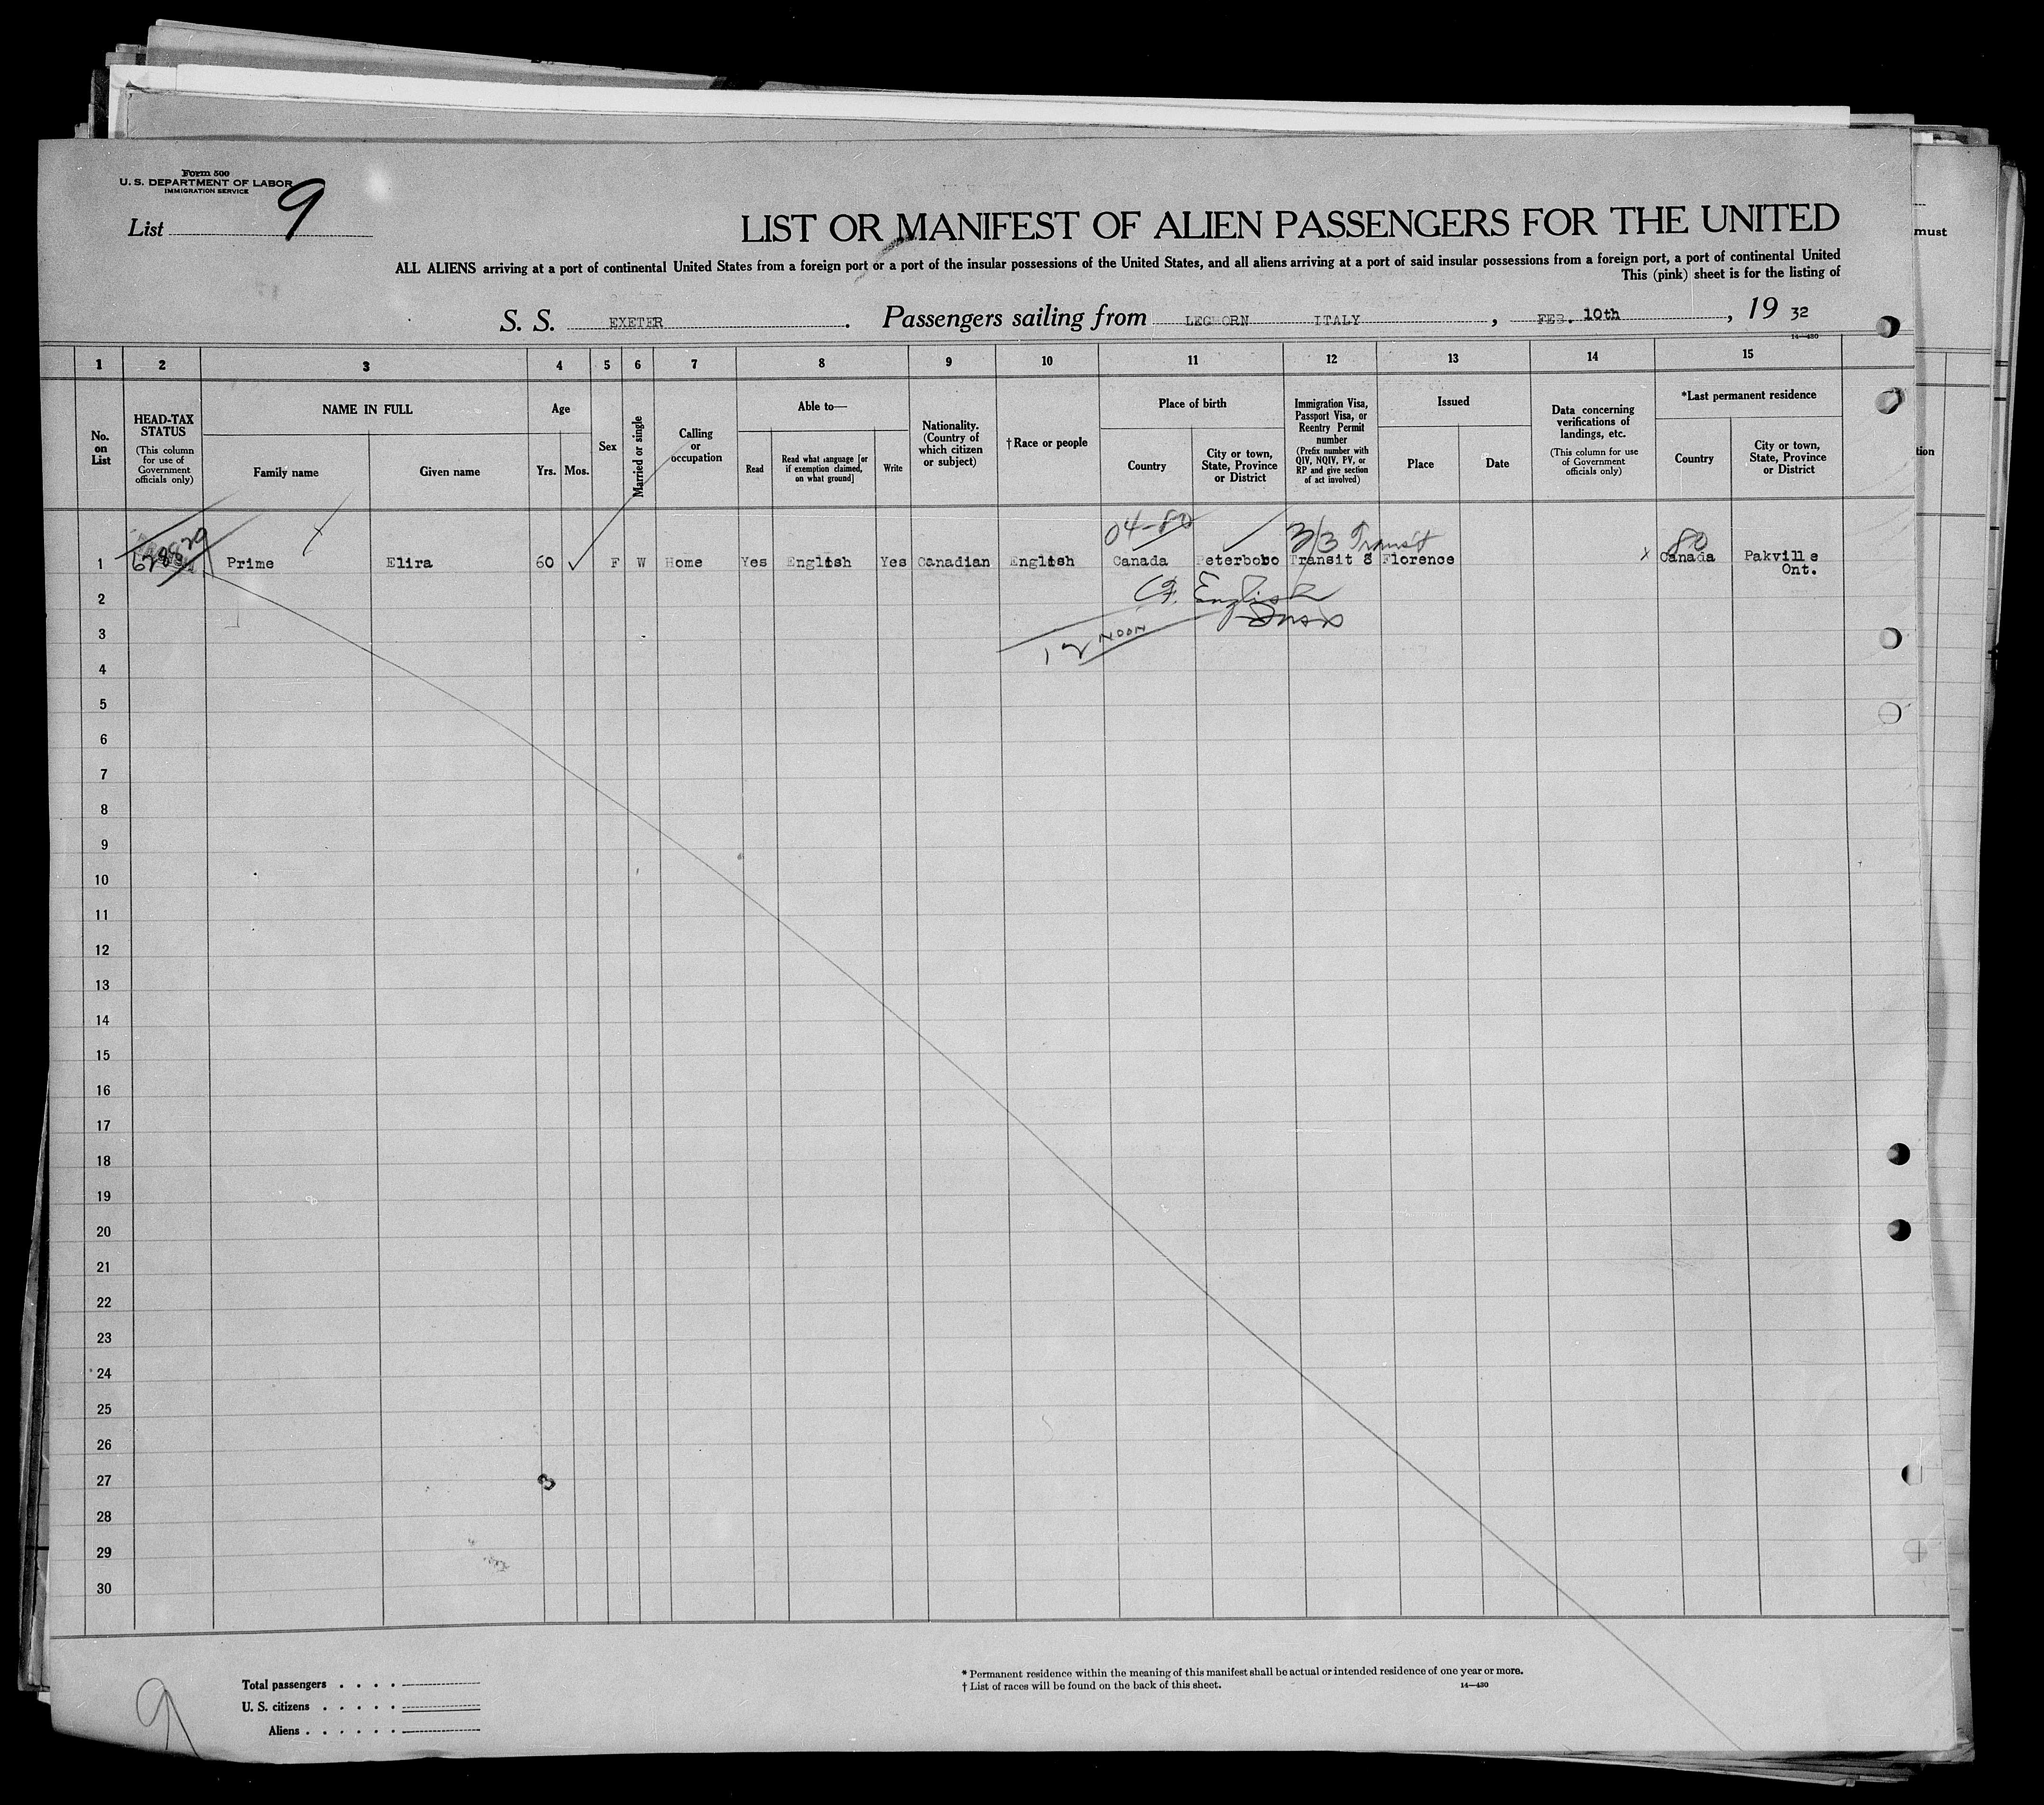 Form 500
U. S. DEPARTMENT OF LABOR
IMMIGRATION SERVICE
List 9
LIST OR MANIFEST OF ALIEN PASSENGERS FOR THE UNITED
ALL ALIENS arriving at a port of continental United States from a foreign port or a port of the insular possessions of the United States, and all aliens arriving at a port of said insular possessions from a foreign port, a port of continental United
This (pink) sheet is for the listing of
S. S. EXETER. Passengers sailing from LEGHORN ITALY, FEB. 10th, 19 32
14—430
must
tion
1 2 3 4 5 6 7 8 9 10 11 12 13 14 15
No. on List
HEAD-TAX STATUS
(This column for use of Government officials only)
NAME IN FULL
Family name
Given name
Age
Yrs.
Mos.
Sex
Married or single
Calling or occupation
Able to—
Read
Read what language [or if exemption claimed, on what ground]
Write
Nationality. (Country of which citizen or subject)
†Race or people
Place of birth
Country
City or town, State, Province or District
Immigration Visa, Passport Visa, or Reentry Permit number
(Prefix number with QIV, NQIV, PV, or RP and give section of act involved)
Issued
Place
Date
Data concerning verifications of landings, etc.
(This column for use of Government officials only)
*Last permanent residence
Country
City or town, State, Province or District
04-80
3/3 Transit
80
1 Prime Elira 60 ✓ F W Home Yes English Yes Canadian English Canada Peterboro Transit 8 Florence x Canada Pakville
Ont.
English
2
3
12 NOON
4
5
6
7
8
9
10
11
12
13
14
15
16
17
18
19
20
21
22
23
24
25
26
27
28
29
30
Total passengers . . . .
U. S. citizens . . . . .
Aliens . . . . . .
* Permanent residence within the meaning of this manifest shall be actual or intended residence of one year or more.
† List of races will be found on the back of this sheet.
14—430
9